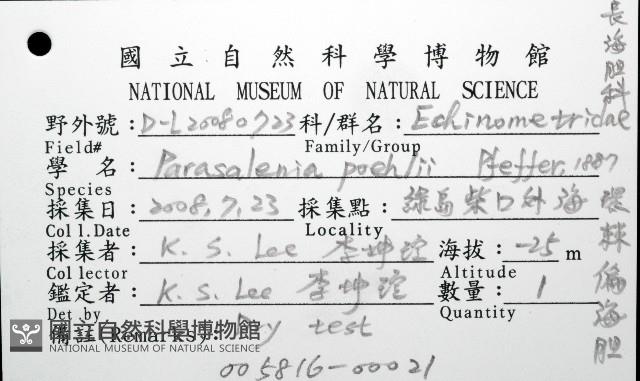 國立自然科學博物館
NATIONAL MUSEUM OF NATURAL SCIENCE
野外號：D-L20080723 科/群名：Echinometridae
Field# Family/Group
學名：Parasalenia poehlii Pfeffer, 1887
Species
採集日：2008,7,23 採集點：綠島柴口外海
Coll.Date Locality
採集者：K. S. Lee 李坤瑄 海拔：-25 m
Collector Altitude
鑑定者：K. S. Lee 李坤瑄 數量：1
Det by Quantity
備註(Remarks)：Dry test
國立自然科學博物館
NATIONAL MUSEUM OF NATURAL SCIENCE
005816-00021
長海胆科
環棘偏海胆